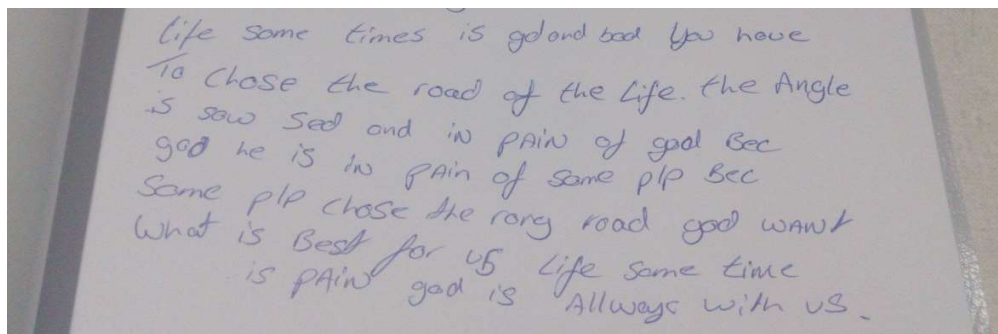 life some times is gdond bad you have
To chose the road of the life. the Angle
is sow sed and in PAiN of god Bec
god he is in pain of some plp Bec
Some plp chose the rong road god WANt
What is Best for us life some time
is PAiN god is Allways with us.